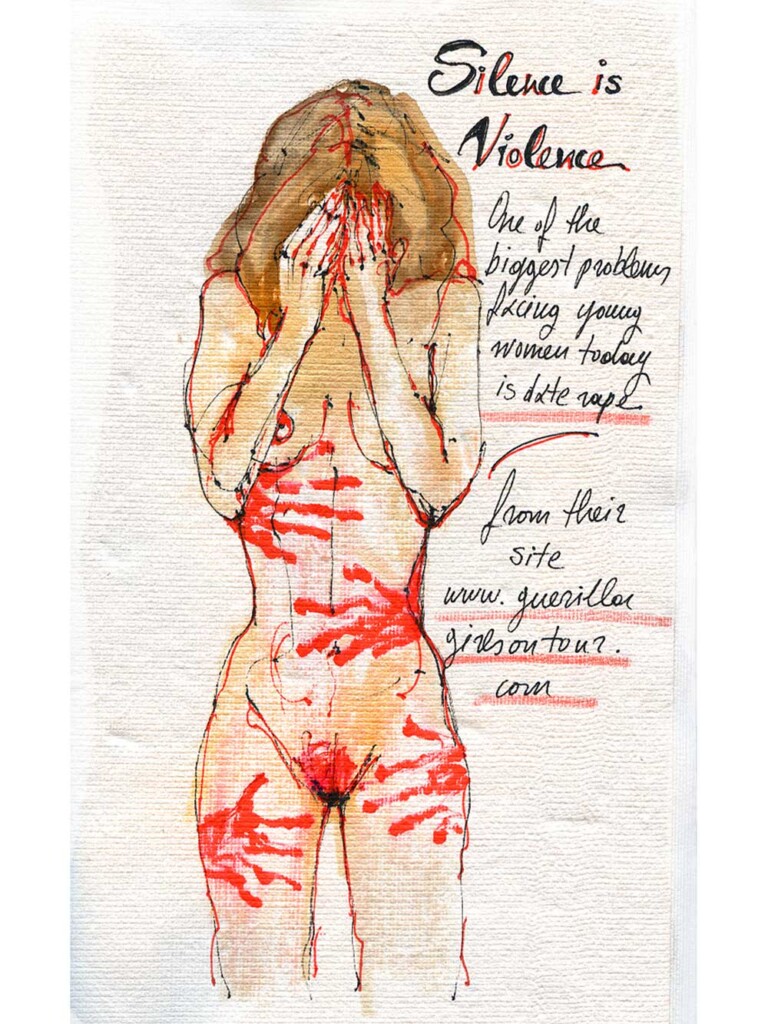 Silence is
Violence
One of the
biggest problems
facing young
women today
is date rape
from their
site
www.guerilla
girlsontour.
com